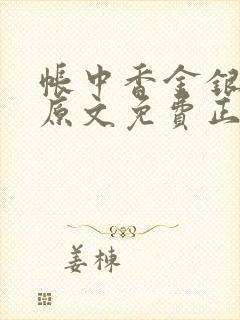 帳中香金銀
原文免費正
姜棟